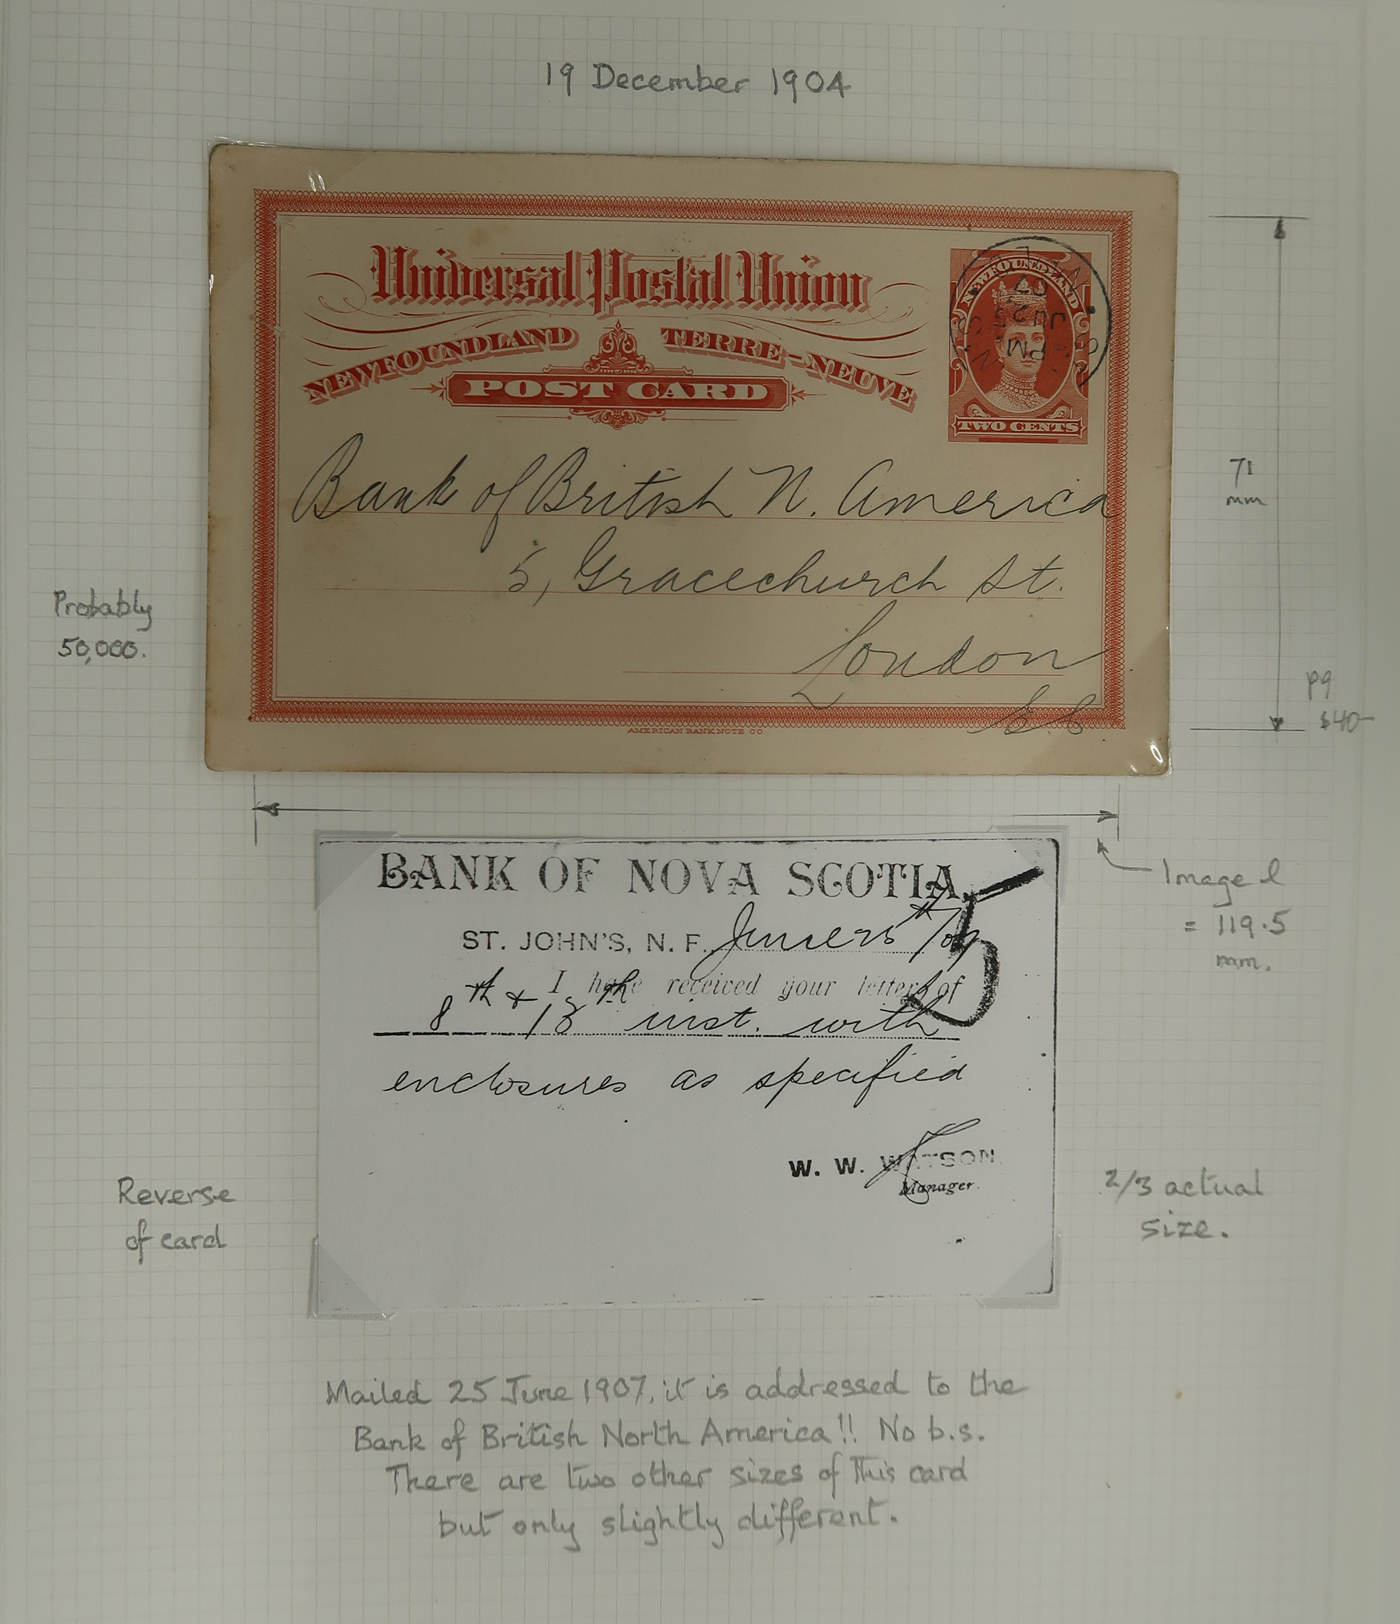 19 December 1904
Universal Postal Union
NEWFOUNDLAND TERRE-NEUVE
POST CARD
NEWFOUNDLAND
PM
JU 25
07
TWO CENTS
Bank of British N. America
5, Gracechurch St.
London
E C
AMERICAN BANK NOTE CO.
71
mm
Probably
50,000.
P9
$40-
Image l
= 119.5
mm.
BANK OF NOVA SCOTIA,
ST. JOHN'S, N. F. June 25th/07
5
I have received your letters of
8th & 13th inst. with
enclosures as specified
W. W. WATSON
Manager.
Reverse
of card
2/3 actual
size.
Mailed 25 June 1907, it is addressed to the
Bank of British North America!! No b.s.
There are two other sizes of this card
but only slightly different.